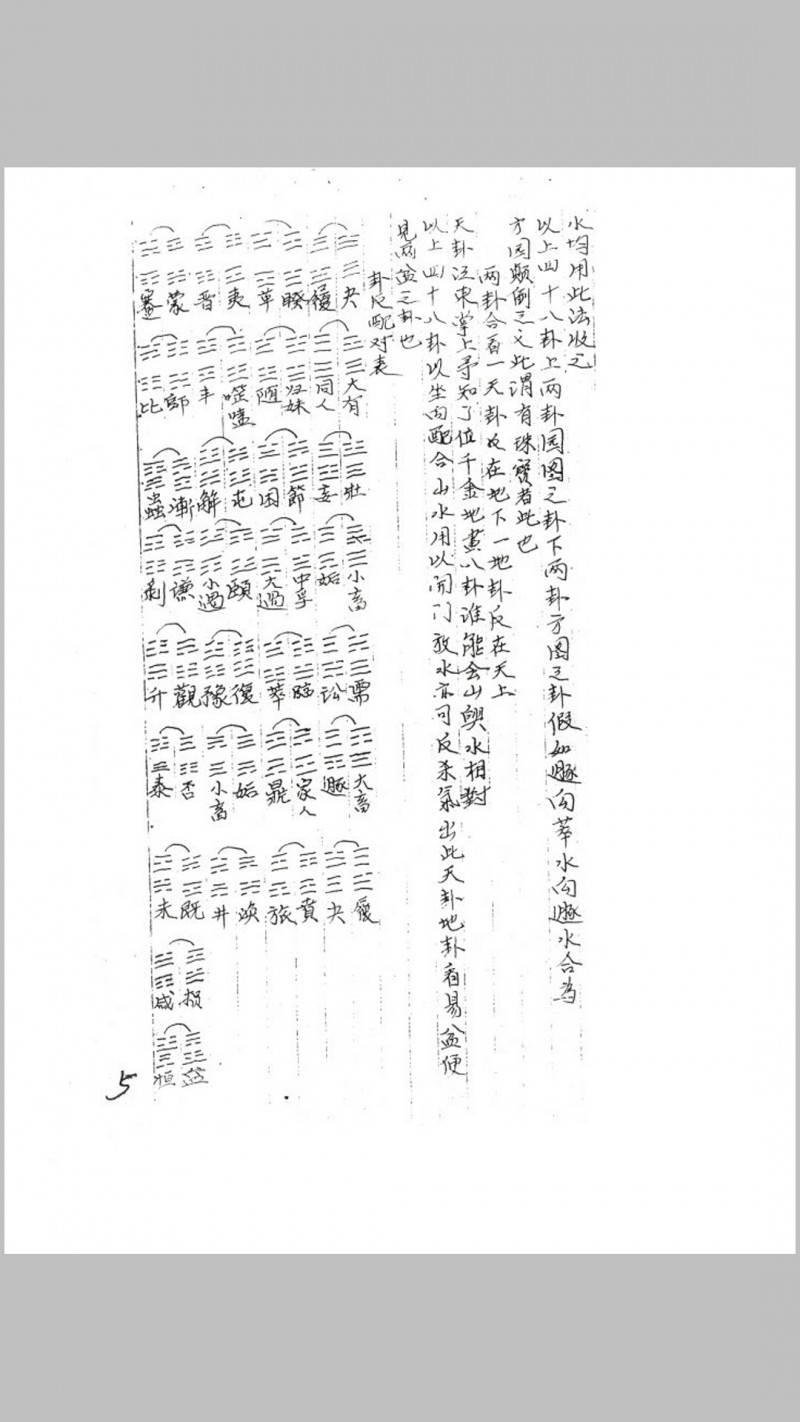 水均用此法收之
以上四十八卦上两卦园图之卦下两卦方图之卦假如遯向萃水向遯水合为
方园颠倒之义此谓有珠寶者此也
两卦合看一天卦反在地下一地卦反在天上
天卦江東掌上予知了位千金地畫八卦谁能会山與水相對
以上四十八卦以坐向配合山水用以闭门放水亦可反杀氣出此天卦地卦看易盆便
見两盆之卦也
卦反配对表
夬 履 睽 革 夷 晋 蒙 蹇
大有 同人 归妹 随 噬嗑 丰 比
壮 妄 節 困 屯 解 漸 蠱
小畜 姤 中孚 大過 頤 小過 謙 剥
需 訟 臨 萃 復 豫 觀 升
大畜 遯 家人 鼎 姤 小畜 否 泰
履 夬 賁 旅 渙 井 既 未
损 咸
益 恒
5